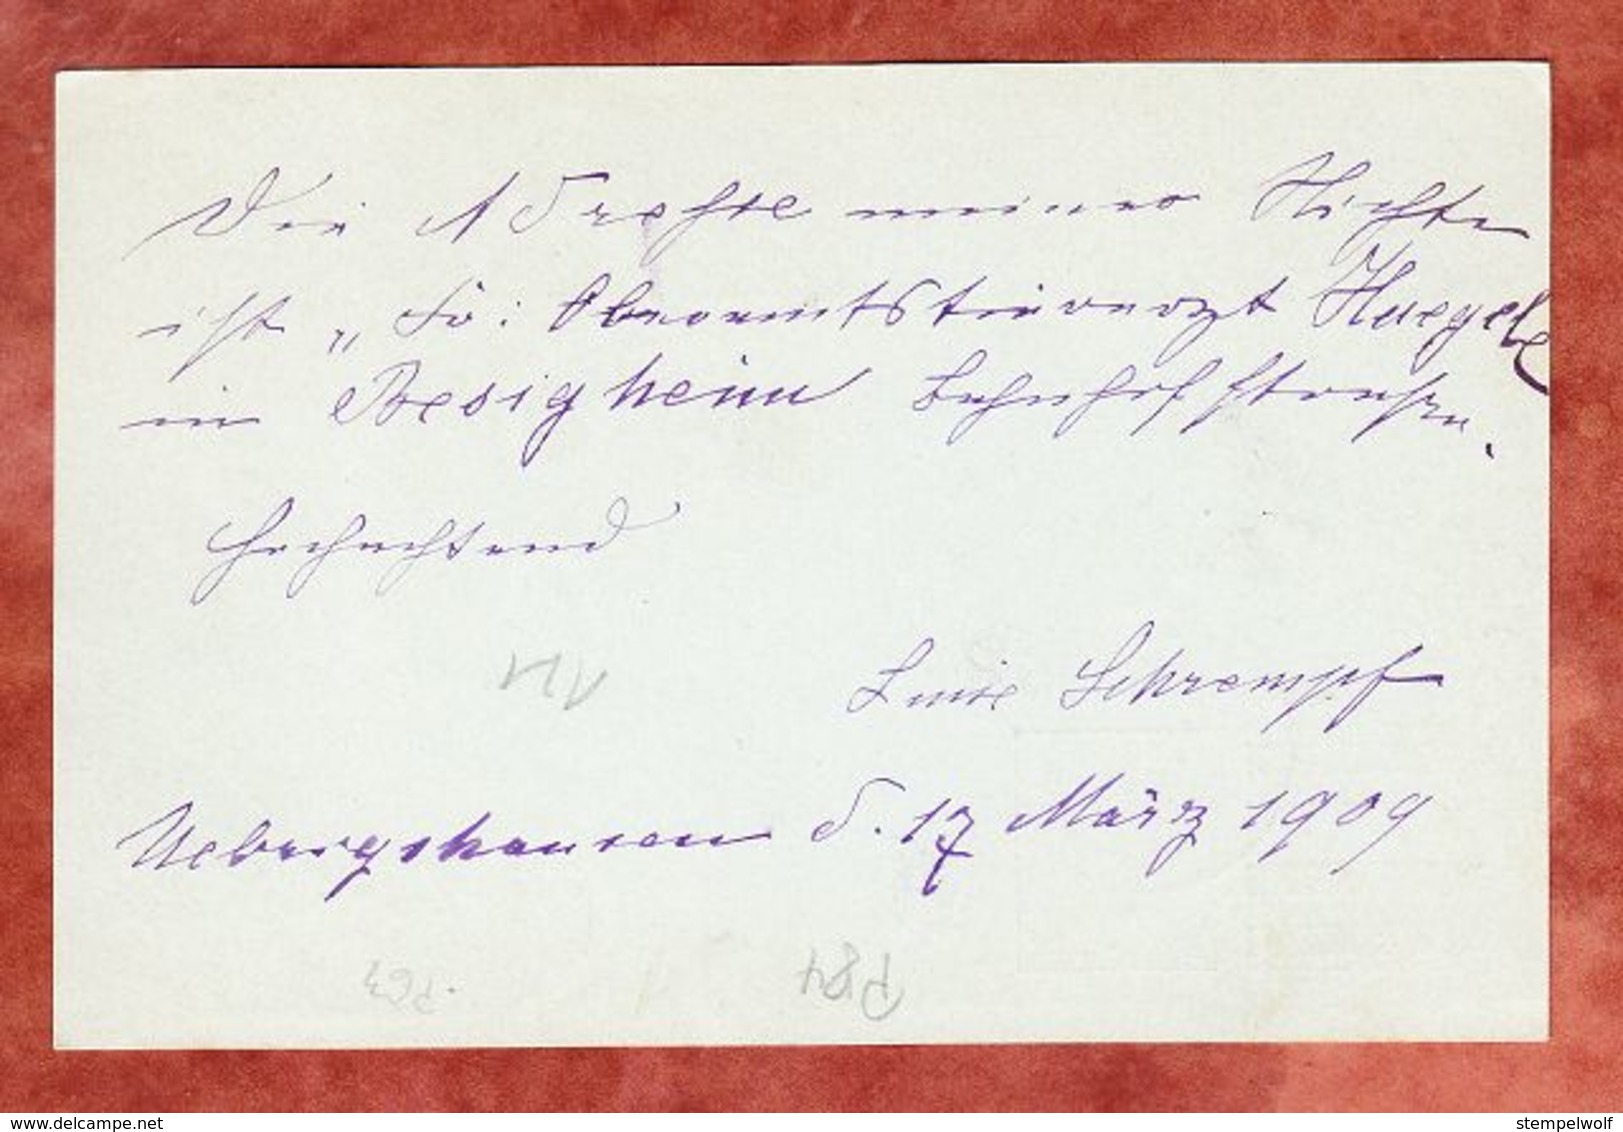 Die Adresse meiner Nichte
ist „ Fr: Oberamtstierarzt Huegele
in Besigheim Bahnhofstrasse.
Hochachtend
Luise Schrempf
Uebrigshausen d. 17 März 1909
P84
P63
© delcampe.net
stempelwolf